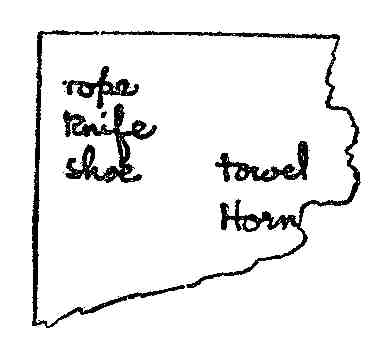 rope
Knife
shoe
towel
Horn